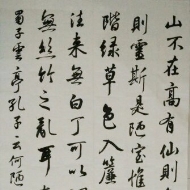 山不在高有仙則
則靈斯是陋室惟
階緑草色入簾
往来無白丁可以
無絲竹之亂耳
蜀子雲亭孔子云何陋